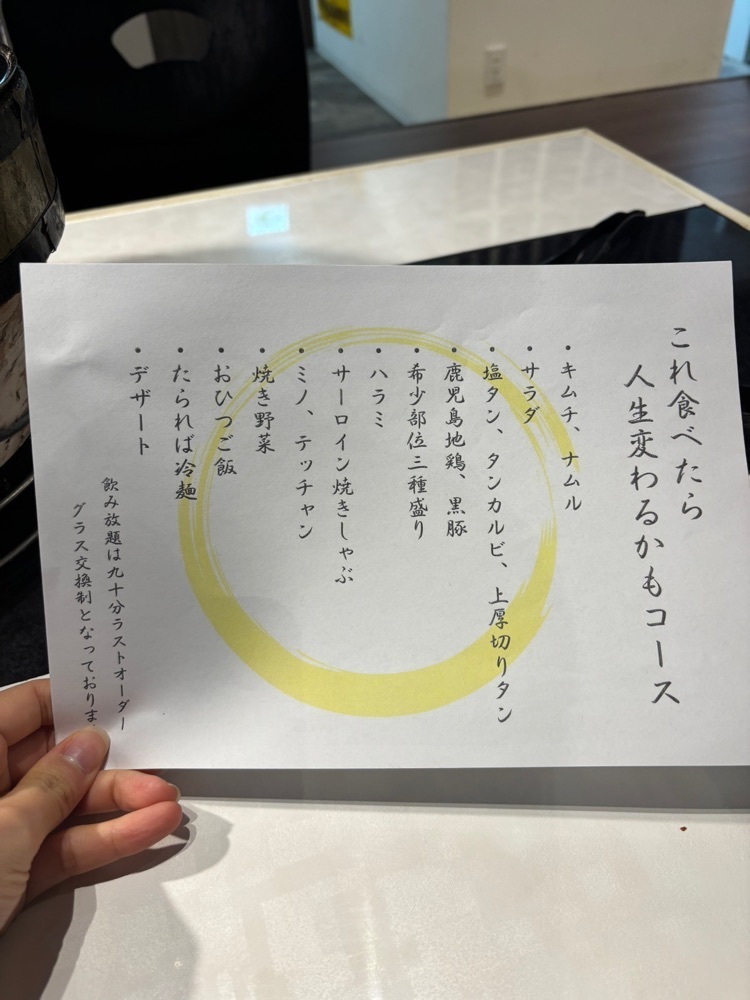 これ食べたら
人生変わるかもコース
・キムチ、ナムル
・サラダ
・塩タン、タンカルビ、上厚切りタン
・鹿児島地鶏、黒豚
・希少部位三種盛り
・ハラミ
・サーロイン焼きしゃぶ
・ミノ、テッチャン
・焼き野菜
・おひつご飯
・たられば冷麺
・デザート
飲み放題は九十分ラストオーダー
グラス交換制となっておりま